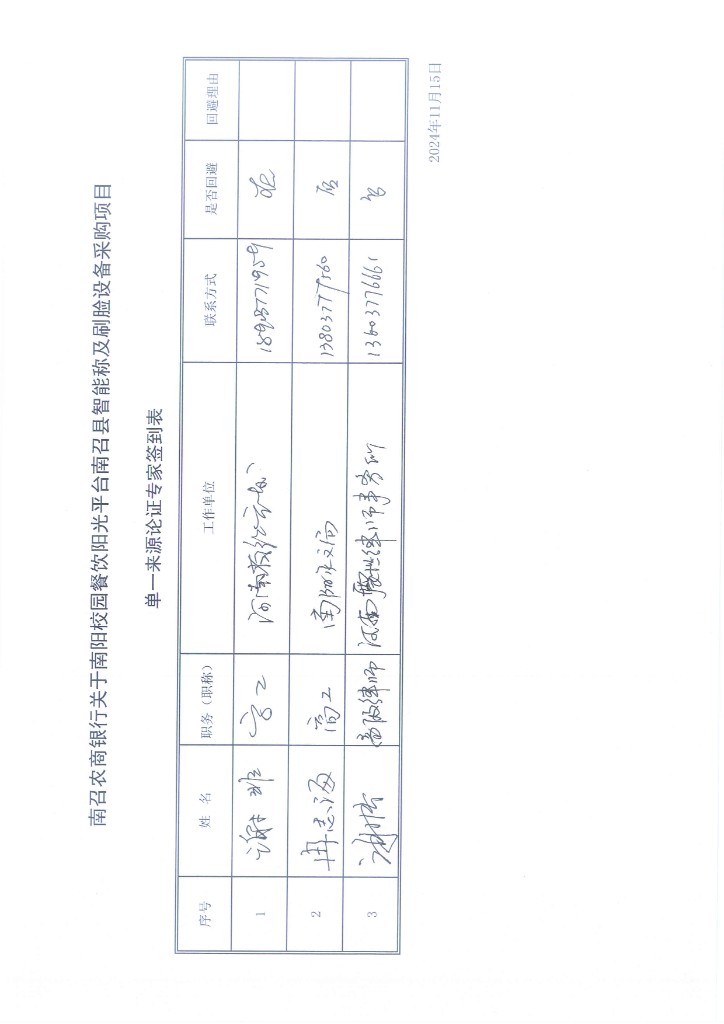 南召农商银行关于南阳校园餐饮阳光平台南召县智能称及刷脸设备采购项目
单一来源论证专家签到表
序号 姓名 职务（职称） 工作单位 联系方式 是否回避 回避理由
1 高工 否
2 高工 13803777560 否
3 律师 律师事务所 13603776661 否
2024年11月15日